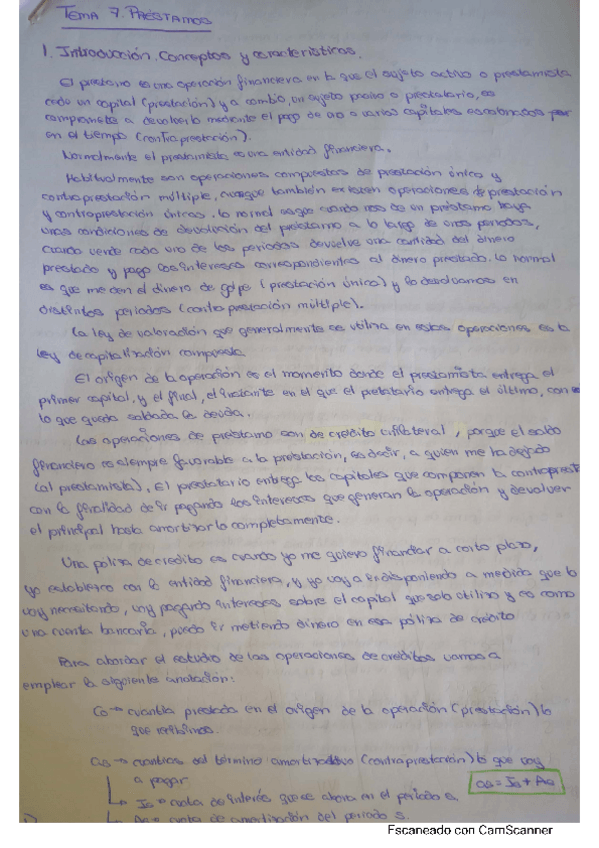 TEMA 7. PRÉSTAMOS
1. Introducción. Conceptos y características.
El préstamo es una operación financiera en la que el sujeto activo o prestamista
cede un capital (prestación) y a cambio, un sujeto pasivo o prestatario, se
compromete a devolverlo mediante el pago de uno o varios capitales escalonados
en el tiempo (contraprestación).
Normalmente el prestamista es una entidad financiera.
Habitualmente son operaciones compuestas de prestación única y
contraprestación múltiple, aunque también existen operaciones de prestación
y contraprestación únicas. Lo normal es que cuando nos den un préstamo haya
unas condiciones de devolución del préstamo a lo largo de unos periodos,
cuando vence cada uno de los periodos devuelve una cantidad del dinero
prestado y pago los intereses correspondientes al dinero prestado. Lo normal
es que me den el dinero de golpe (prestación única) y lo devolvamos en
distintos periodos (contraprestación múltiple).
La ley de valoración que generalmente se utiliza en estas operaciones es la
ley de capitalización compuesta.
El origen de la operación es el momento donde el prestamista entrega el
primer capital, y el final, el instante en el que el pretatario entrega el último, con
lo que queda saldada la deuda.
Las operaciones de préstamo son de crédito unilateral, porque el saldo
financiero es siempre favorable a la prestación, es decir, a quien me ha dejado
(al prestamista). El prestatario entrega los capitales que componen la contraprest
con la finalidad de ir pagando los intereses que generan la operación y devolver
el principal hasta amortizarlo completamente.
Una póliza de crédito es cuando yo me quiero financiar a corto plazo,
yo establezco con la entidad financiera, y yo voy a ir disponiendo a medida que lo
voy necesitando, voy pagando intereses sobre el capital que solo utilizo y es como
una cuenta bancaria, puedo ir metiendo dinero en esa póliza de crédito
Para abordar el estudio de las operaciones de créditos vamos a
emplear la siguiente anotación:
Co → cuantía prestada en el origen de la operación (prestación) lo
que recibimos.
as → cuantías del término amortizativo (contraprestación) lo que voy
a pagar
as = Is + As
↳ Is → cuota de interés que se abona en el periodo s.
↳ As → cuota de amortización del periodo s.
Escaneado con CamScanner